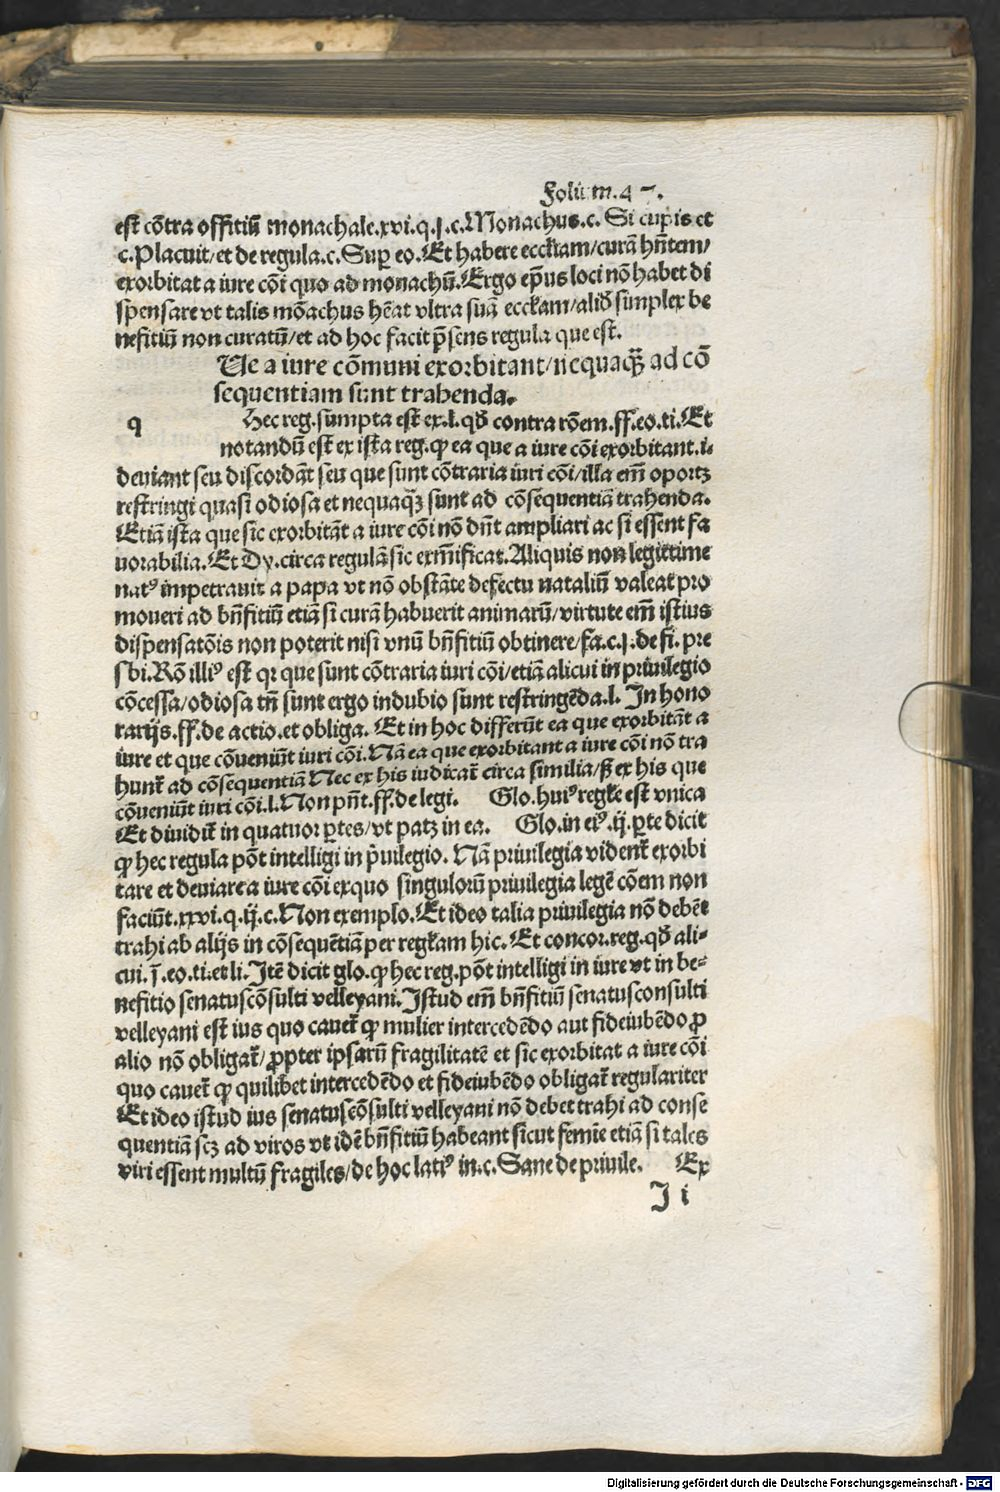 Foliū m.4 7.
est cōtra offitiū monachale.xvi.q.j.c.Monachus.c. Si cupis et
c.Placuit/et de regula.c.Suꝑ eo.Et habere eccłiam/curā hñtem/
exorbitat a iure cōi quo ad monachū.Ergo ep̄us loci nō habet di
spensare vt talis mōachus hēat vltra suā eccłam/aliđ simplex be
nefitiū non curatū/et ad hoc facit p̄sens regula que est.
Ue a iure cōmuni exorbitant/nequaq̄ꝫ ad cō
sequentiam sunt trahenda.
q Hec reg.sumpta est ex.l.qđ contra rōem.ff.eo.ti.Et
notandū est ex ista reg.ꝙ ea que a iure cōi exorbitant.i.
deuiant seu discordāt seu que sunt cōtraria iuri cōi/illa em̄ oportꝫ
restringi quasi odiosa et nequaq̄ꝫ sunt ad cōsequentiā trahenda.
Etiā ista que sic exorbitāt a iure cōi nō dn̄t ampliari ac si essent fa
uorabilia.Et Dy.circa regulā sic exm̄ificat.Aliquis non legittime
natꝰ impetrauit a papa vt nō obstāte defectu nataliū valeat pro
moueri ad bn̄fitiū etiā si curā habuerit animarū/virtute em̄ istius
dispensatōis non poterit nisi vnū bn̄fitiū obtinere/fa.c.j.de fi. pre
sbi.Rō illiꝰ est qꝛ que sunt cōtraria iuri cōi/etiā alicui in priuilegio
cōcessa/odiosa tn̄ sunt ergo indubio sunt restringēda.l. In hono
rarijs.ff.de actio.et obliga. Et in hoc differūt ea que exorbitāt a
iure et que cōueniūt iuri cōi.Nā ea que exorbitant a iure cōi nō tra
hunt᷑ ad cōsequentiā Nec ex his iudicat᷑ circa similia/sꝫ ex his que
cōueniūt iuri cōi.l.Non pn̄t.ff.de legi. Glo.huiꝰ regłe est vnica
Et diuidit᷑ in quatuor ꝑtes/vt patꝫ in ea. Glo.in eiꝰ.ij.ꝑte dicit
ꝙ hec regula pōt intelligi in p̄uilegio. Nā priuilegia vident᷑ exorbi
tare et deuiare a iure cōi exquo singulorū priuilegia legē cōem non
faciūt.xxvi.q.ij.c.Non exemplo.Et ideo talia priuilegia nō debēt
trahi ab alijs in cōsequētiā per regłam hic.Et concor.reg.qđ ali-
cui.ȷ̄.eo.ti.et li.Itē dicit glo.ꝙ hec reg.pōt intelligi in iure vt in be-
nefitio senatuscōsulti velleyani.Istud em̄ bn̄fitiū senatusconsulti
velleyani est ius quo cauet᷑ ꝙ mulier intercedēdo aut fideiubēdo ꝓ
alio nō obligat᷑/ꝓpter ipsarū fragilitatē et sic exorbitat a iure cōi
quo cauet᷑ ꝙ quilibet intercedēdo et fideiubēdo obligat᷑ regulariter
Et ideo istud ius senatuscōsulti velleyani nō debet trahi ad conse
quentiā scꝫ ad viros vt idē bn̄fitiū habeant sicut femīe etiā si tales
viri essent multū fragiles/de hoc latiꝰ in.c.Sane de priuile. Ex
I i
Digitalisierung gefördert durch die Deutsche Forschungsgemeinschaft - DFG